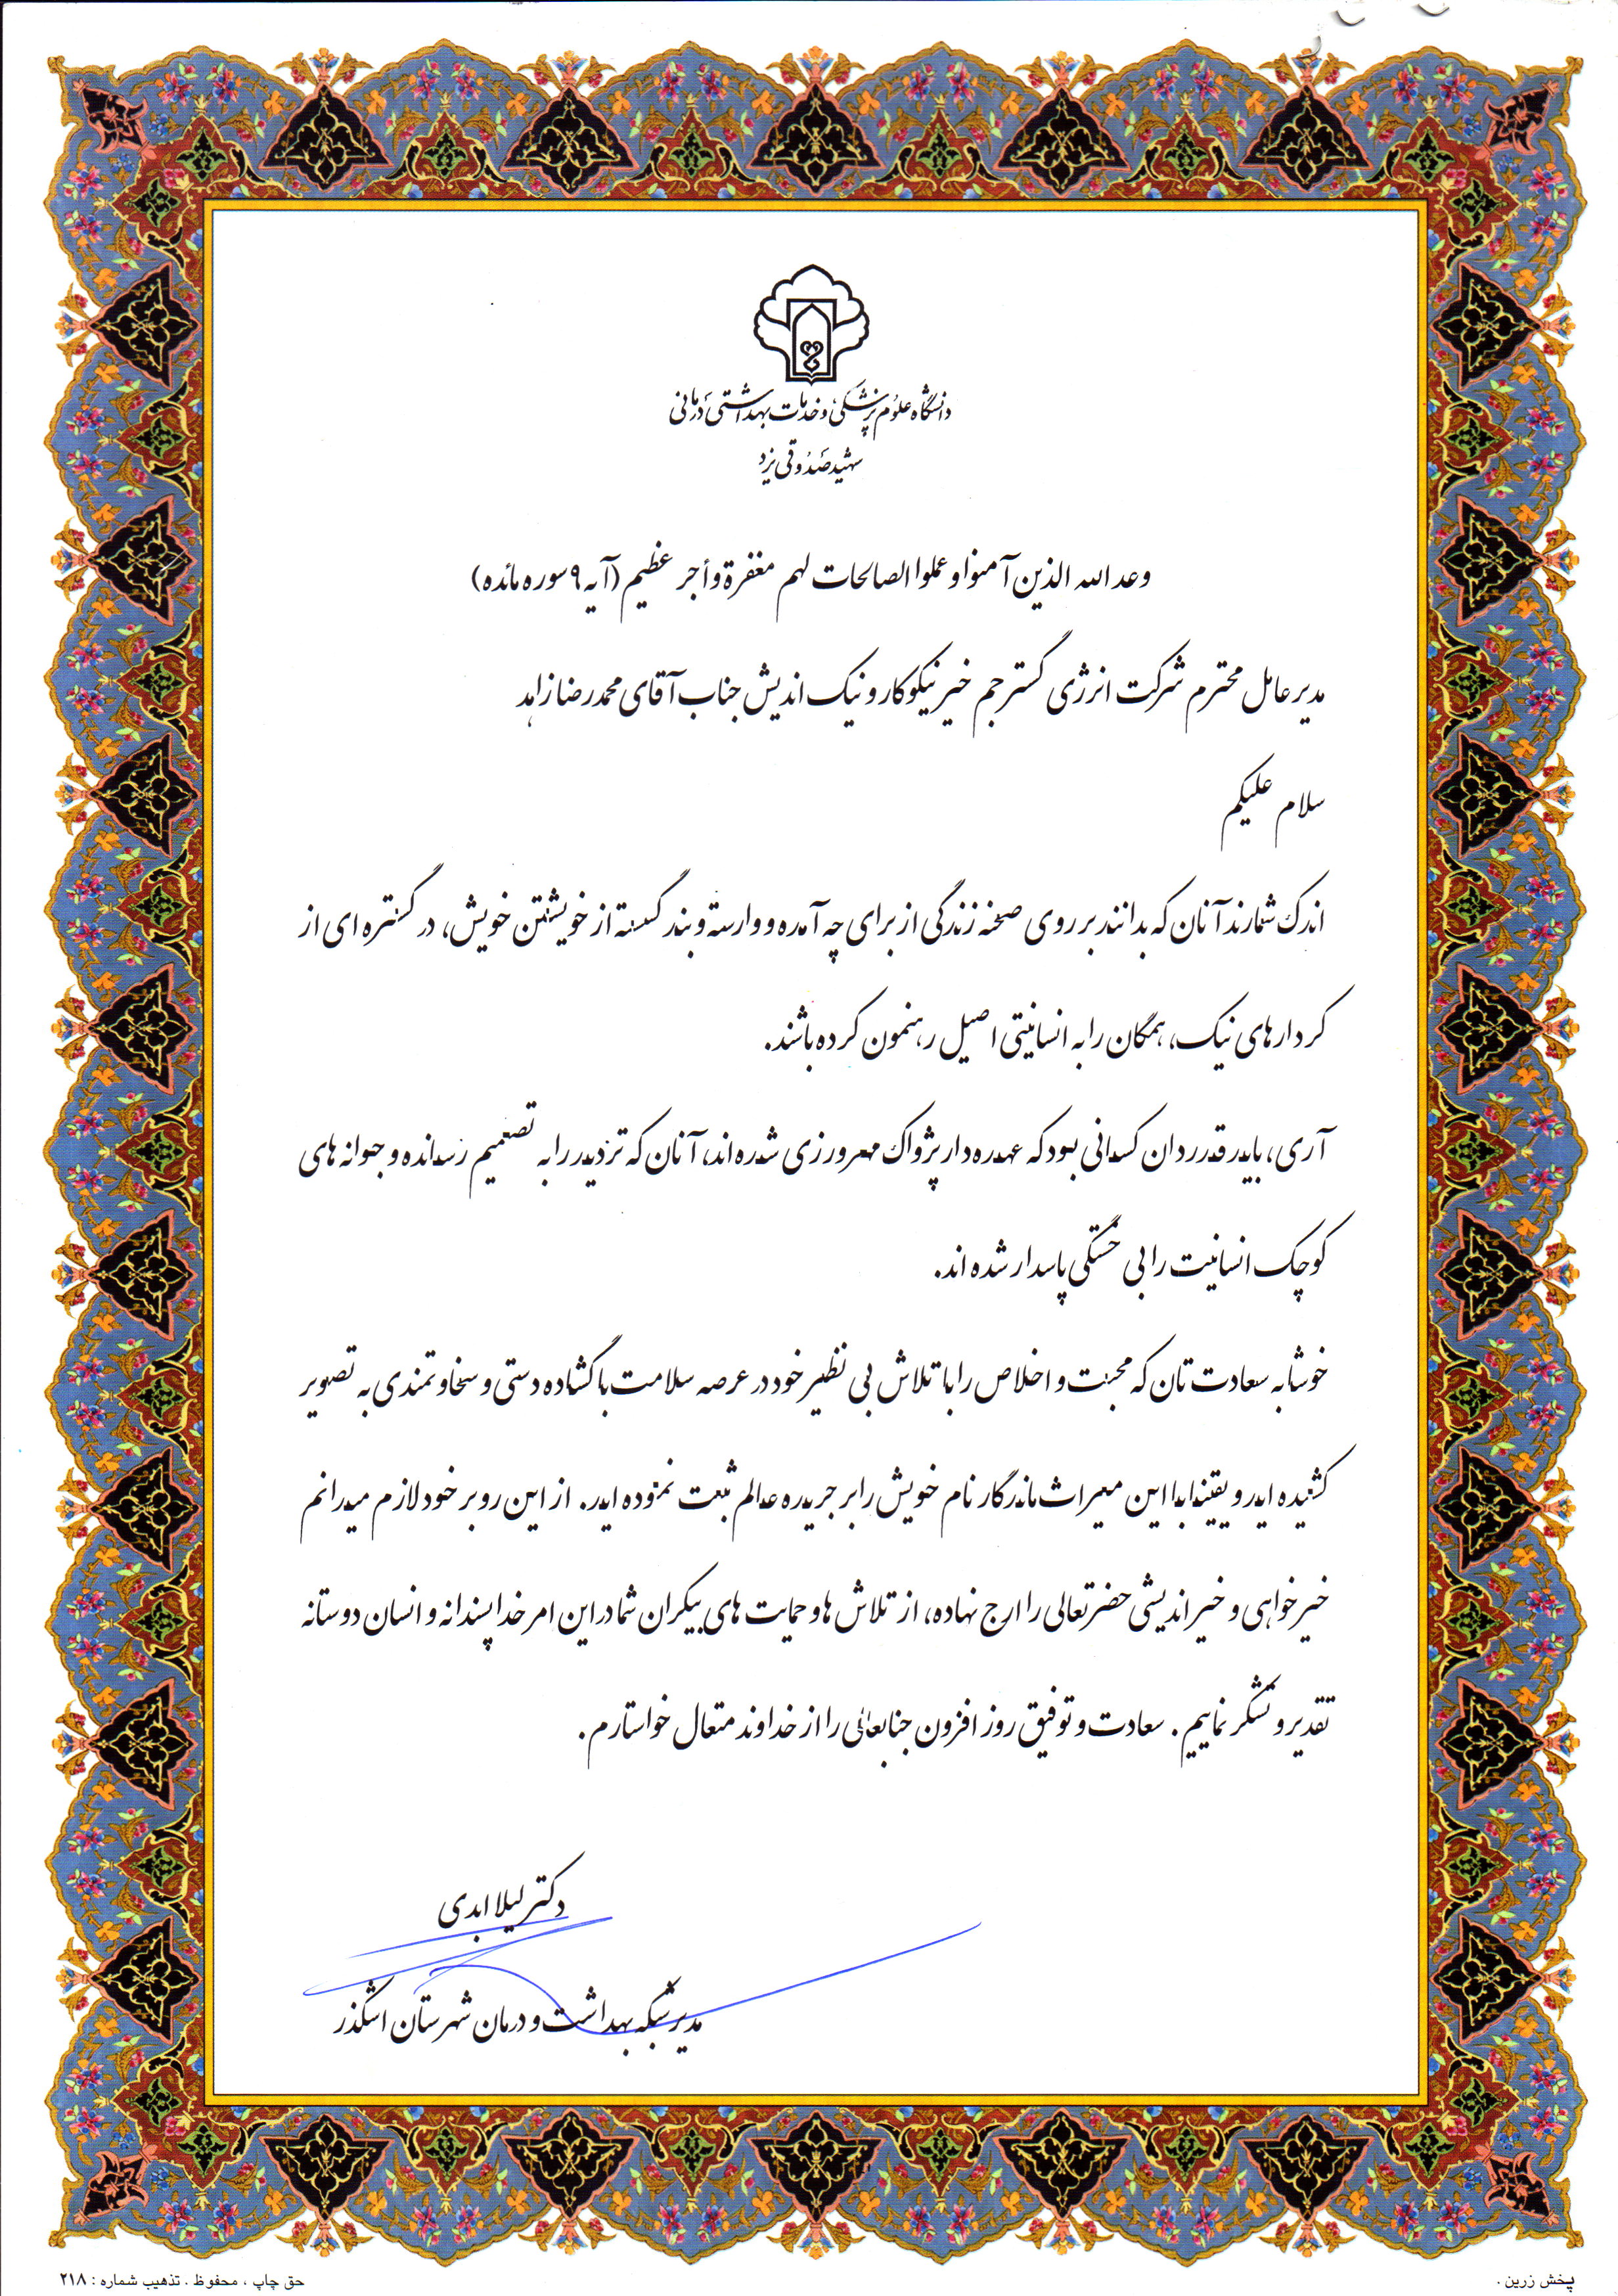 دانشگاه علوم پزشکی و خدمات بهداشتی درمانی
شهید صدوقی یزد
وعد الله الذین آمنوا و عملوا الصالحات لهم مغفرة و أجر عظیم (آیه ۹ سوره مائده)
مدیر عامل محترم شرکت انرژی گستر جم خیر نیکوکار و نیک اندیش جناب آقای محمدرضا زاهد
سلام علیکم
اندک شمارند آنان که بدانند بر روی صحنه زندگی از برای چه آمده و وارسته و بند گسسته از خویشتن خویش، در گستره ای از
کردارهای نیک، همگان را به انسانیتی اصیل رهنمون کرده باشند.
آری، باید قدردان کسانی بود که عهده دار پژواک مهرورزی شده اند، آنان که تردید را به تصمیم رسانده و جوانه های
کوچک انسانیت را بی خستگی پاسدار شده اند.
خوشا به سعادت تان که محبت و اخلاص را با تلاش بی نظیر خود در عرصه سلامت با گشاده دستی و سخاوتمندی به تصویر
کشیده اید و یقیندا با این میراث ماندگار نام خویش را بر جریده عالم ثبت نموده اید. از این رو بر خود لازم میدانم
خیرخواهی و خیراندیشی حضرتعالی را ارج نهاده، از تلاش ها و حمایت های بیکران شما در این امر خداپسندانه و انسان دوستانه
تقدیر و تشکر نماییم. سعادت و توفیق روز افزون جنابعالی را از خداوند متعال خواستارم.
دکتر لیلا ابدی
مدیر شبکه بهداشت و درمان شهرستان اشکذر
پخش زرین.
حق چاپ، محفوظ. تذهیب شماره: ۲۱۸